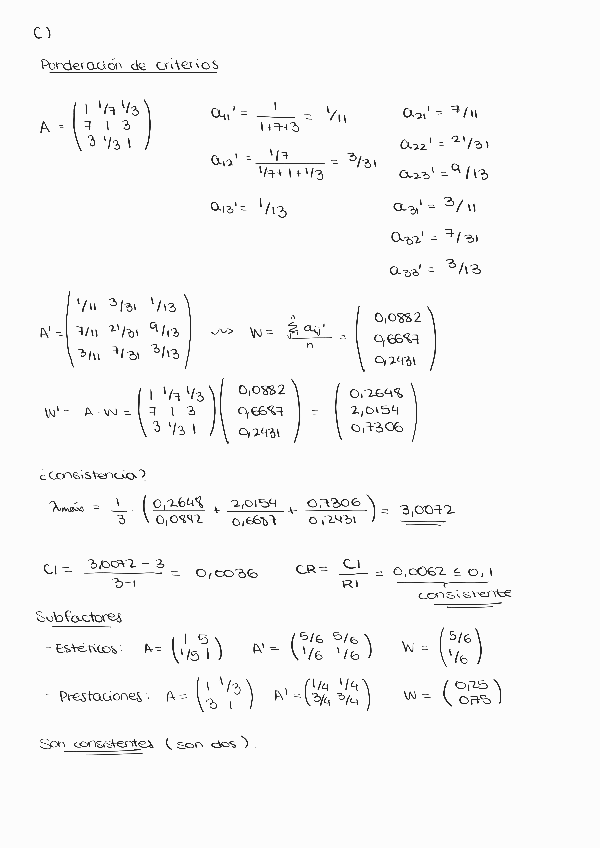 C)
Ponderación de criterios
A = ( 1 1/7 1/3 ; 7 1 3 ; 3 1/3 1 )
a11' = 1 / (1+7+3) = 1/11
a12' = (1/7) / (1/7+1+1/3) = 3/31
a13' = 1/13
a21' = 7/11
a22' = 21/31
a23' = 9/13
a31' = 3/11
a32' = 7/31
a33' = 3/13
A' = ( 1/11 3/31 1/13 ; 7/11 21/31 9/13 ; 3/11 7/31 3/13 ) ⇝ W = Σ aij' / n = ( 0,0882 ; 0,6687 ; 0,2431 )
W' = A · W = ( 1 1/7 1/3 ; 7 1 3 ; 3 1/3 1 ) ( 0,0882 ; 0,6687 ; 0,2431 ) = ( 0,2648 ; 2,0154 ; 0,7306 )
¿Consistencia?
λmáx = 1/3 · ( 0,2648/0,0882 + 2,0154/0,6687 + 0,7306/0,2431 ) = 3,0072
CI = (3,0072 - 3) / (3-1) = 0,0036 CR = CI / RI = 0,0062 ≤ 0,1
consistente
Subfactores
- Estéticos: A = ( 1 5 ; 1/5 1 ) A' = ( 5/6 5/6 ; 1/6 1/6 ) W = ( 5/6 ; 1/6 )
- Prestaciones: A = ( 1 1/3 ; 3 1 ) A' = ( 1/4 1/4 ; 3/4 3/4 ) W = ( 0,25 ; 0,75 )
Son consistentes (son dos).